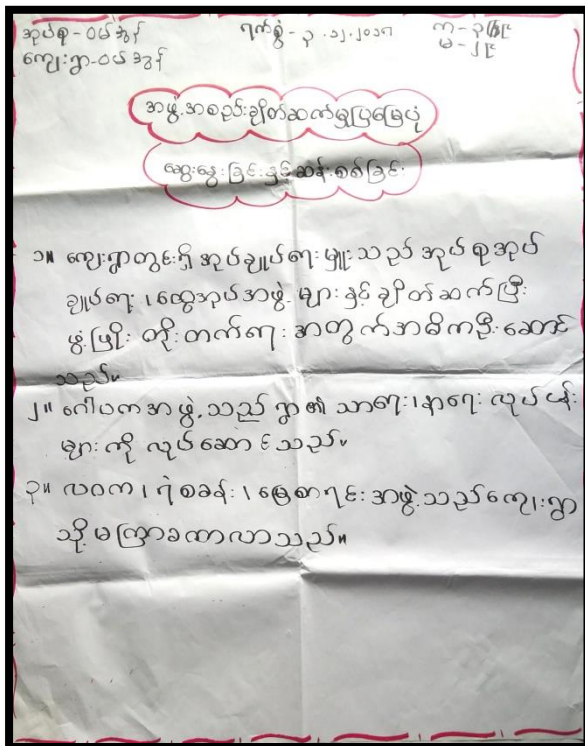 အုပ်စု-ဝမ်အွန် ရက်စွဲ - ၃.၁၂.၂၀၁၇ က-၃ဦး
ကျေးရွာ-ဝမ်အွန် မ-၂ဦး
အဖွဲ့အစည်းချိတ်ဆက်မှုပြမြေပုံ
ဆွေးနွေးခြင်းနှင့်ဆန်းစစ်ခြင်း
၁။ ကျေးရွာတွင်းရှိ အုပ်ချုပ်ရေးမှူးသည် အုပ်စုအုပ်
ချုပ်ရေး၊ထွေအုပ်အဖွဲ့များနှင့် ချိတ်ဆက်ပြီး
ဖွံ့ဖြိုး တိုးတက်ရေးအတွက်အဓိကဦးဆောင်
သည်။
၂။ ဂေါပကအဖွဲ့သည် ရွာ၏ သာရေး၊နာရေး လုပ်ငန်း
များကို လုပ်ဆောင်သည်။
၃။ လဝက၊ ရဲစခန်း၊ မြေစာရင်းအဖွဲ့သည်ကျေးရွာ
သို့မကြာခဏလာသည်။